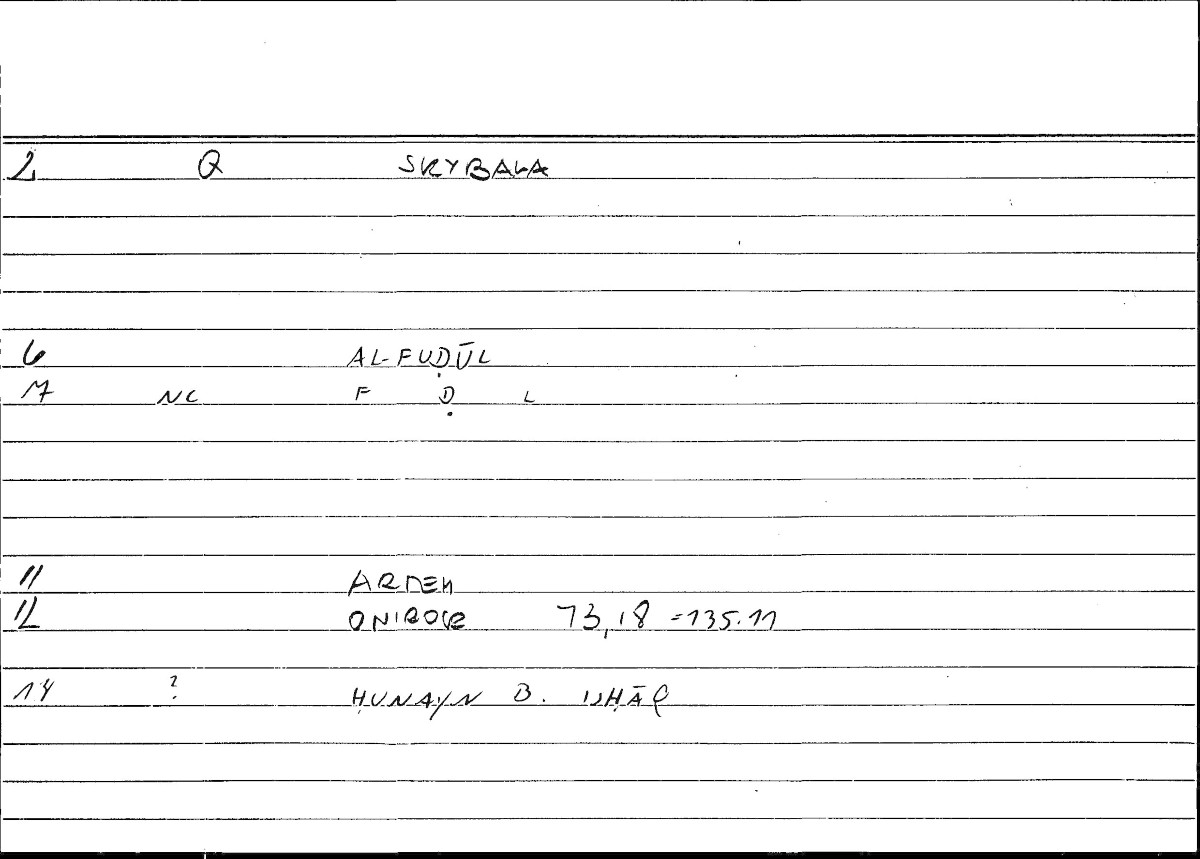 2 Q SKYBALA
6 AL-FUḌŪL
7 NC F Ḍ L
11 ARDEM
12 ONIROCR 73,18 =135.11
14 ? ḤUNAYN B. ISḤĀQ